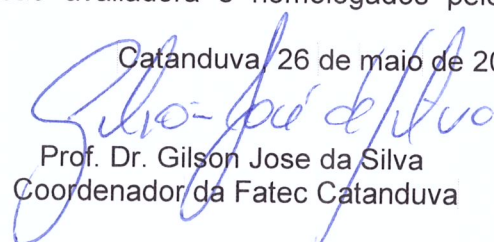 avaliadora e homologados pelo
Catanduva, 26 de maio de 20
Gilson José da Silva
Prof. Dr. Gilson Jose da Silva
Coordenador da Fatec Catanduva